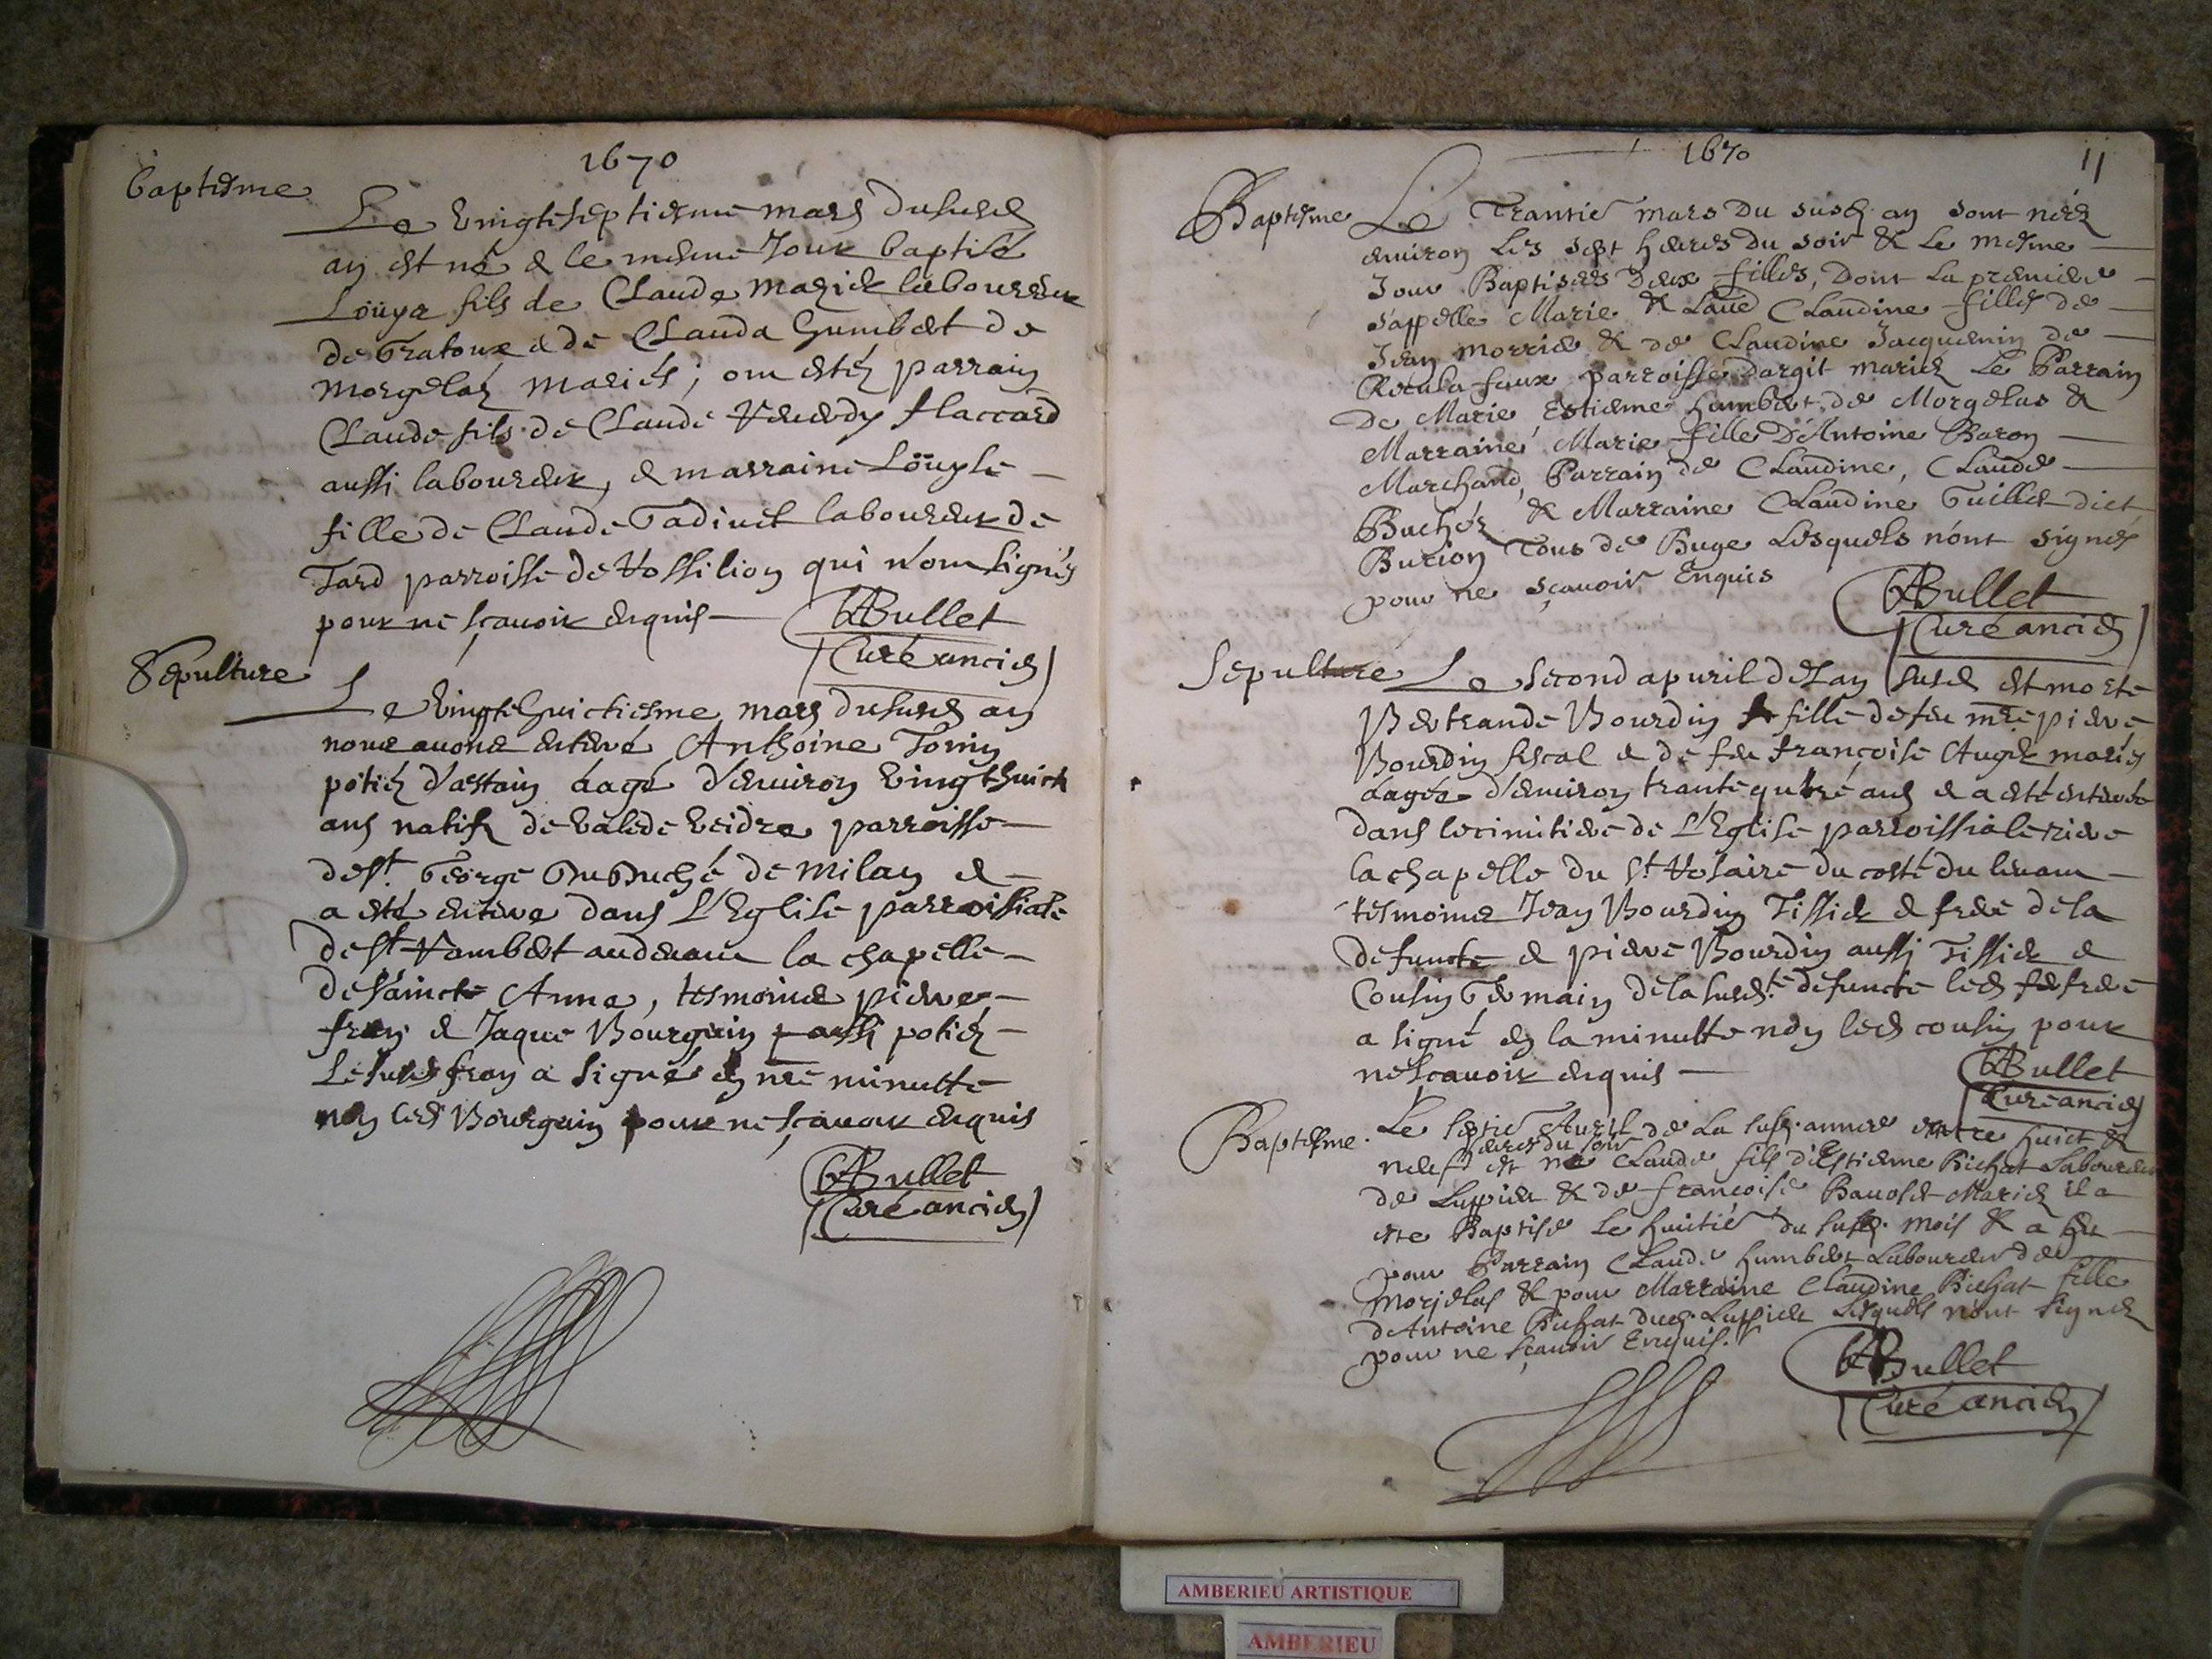 1670
baptesme
Le vingtseptiesme mars dususd
an est né & le mesme Jour baptisé
Loüys fils de Claude Marick laboureur
de & de Clauda humbert de
morgelas mariés; ont estéz parrain
Claude fils de Claude flaccard
aussi laboureur, & marraine Loüyse
fille de Claude laboureur de
parroisse de Vossilion qui n'ont signés
pour ne sçavoir enquis ABullet
Curé ancien
Sepulture
Le vingthuictiesme mars dususd an
nous avons enterré Anthoine Tonin
potier d'estain aagé d'environ vingthuict
ans natif de valede parroisse
de st. George Du Duché de Milan &
a esté enterré dans L'Eglise parroissiale
de st Rambert audevant la chapelle
de saincte Anne, tesmoins pierre
fran & Jaque Bourguin aussi potier
Lesusd fran a signé en nre minutte
non led Bourguin pour ne sçavoir enquis
ABullet
Curé ancien
1670
11
Baptesme Le Trantie mars du susd. an sont néez
environ les sept heures du soir & le mesme
Jour Baptisées Deux filles, Dont la premiere
s'appelle Marie & Laue Claudine filles de
Jean morrier & de Claudine Jacquemin de
Recula faux parroisse dargit mariez Le Parrain
De Marie Estienne humbert de Morgelas &
Marraine Marie fille D'Antoine Baron
Marchand, Parrain de Claudine, Claude
Buchez & Marraine Claudine Guillet dict
Burion Tous de Buge Lesquels n'ont signés
pour ne sçavoir Enquis ABullet
Curé ancien
Sepulture Le second apvril deLan susd est morte
Bertrande Bourdin fille de feu mre pierre
Bourdin fiscal & de feu françoise Auger mariés
aagée d'environ trante qutre ans & a esté enterrée
dans lecimitiere de L'Eglise parroissiale riere
la chapelle du st. Rosaire du costé du levant
tesmoins Jean Bourdin Tissier & frere dela
defuncte & pierre Bourdin aussi Tissier &
Cousin Germain dela susd.te defuncte led frere
a signé en la minutte non led cousin pour
ne sçavoir enquis ABullet
Curé ancien
Baptesme. Le septie Avril de La susd. année entre huict &
heures du soir
neuf est né Claude fils d'Estienne Bichat Laboureur
de Luppieu & de francoise Mariez il a
este Baptisé le huitie du susd. mois & a Eu
pour Parrain Claude humbert Laboureur de
Morjelas & pour Marraine Claudine Bichat fille
d'Antoine Bichat dud. Luppieu Lesquels n'ont signez
pour ne sçavoir Enquis.
ABullet
Curé ancien
AMBERIEU ARTISTIQUE
AMBERIEU